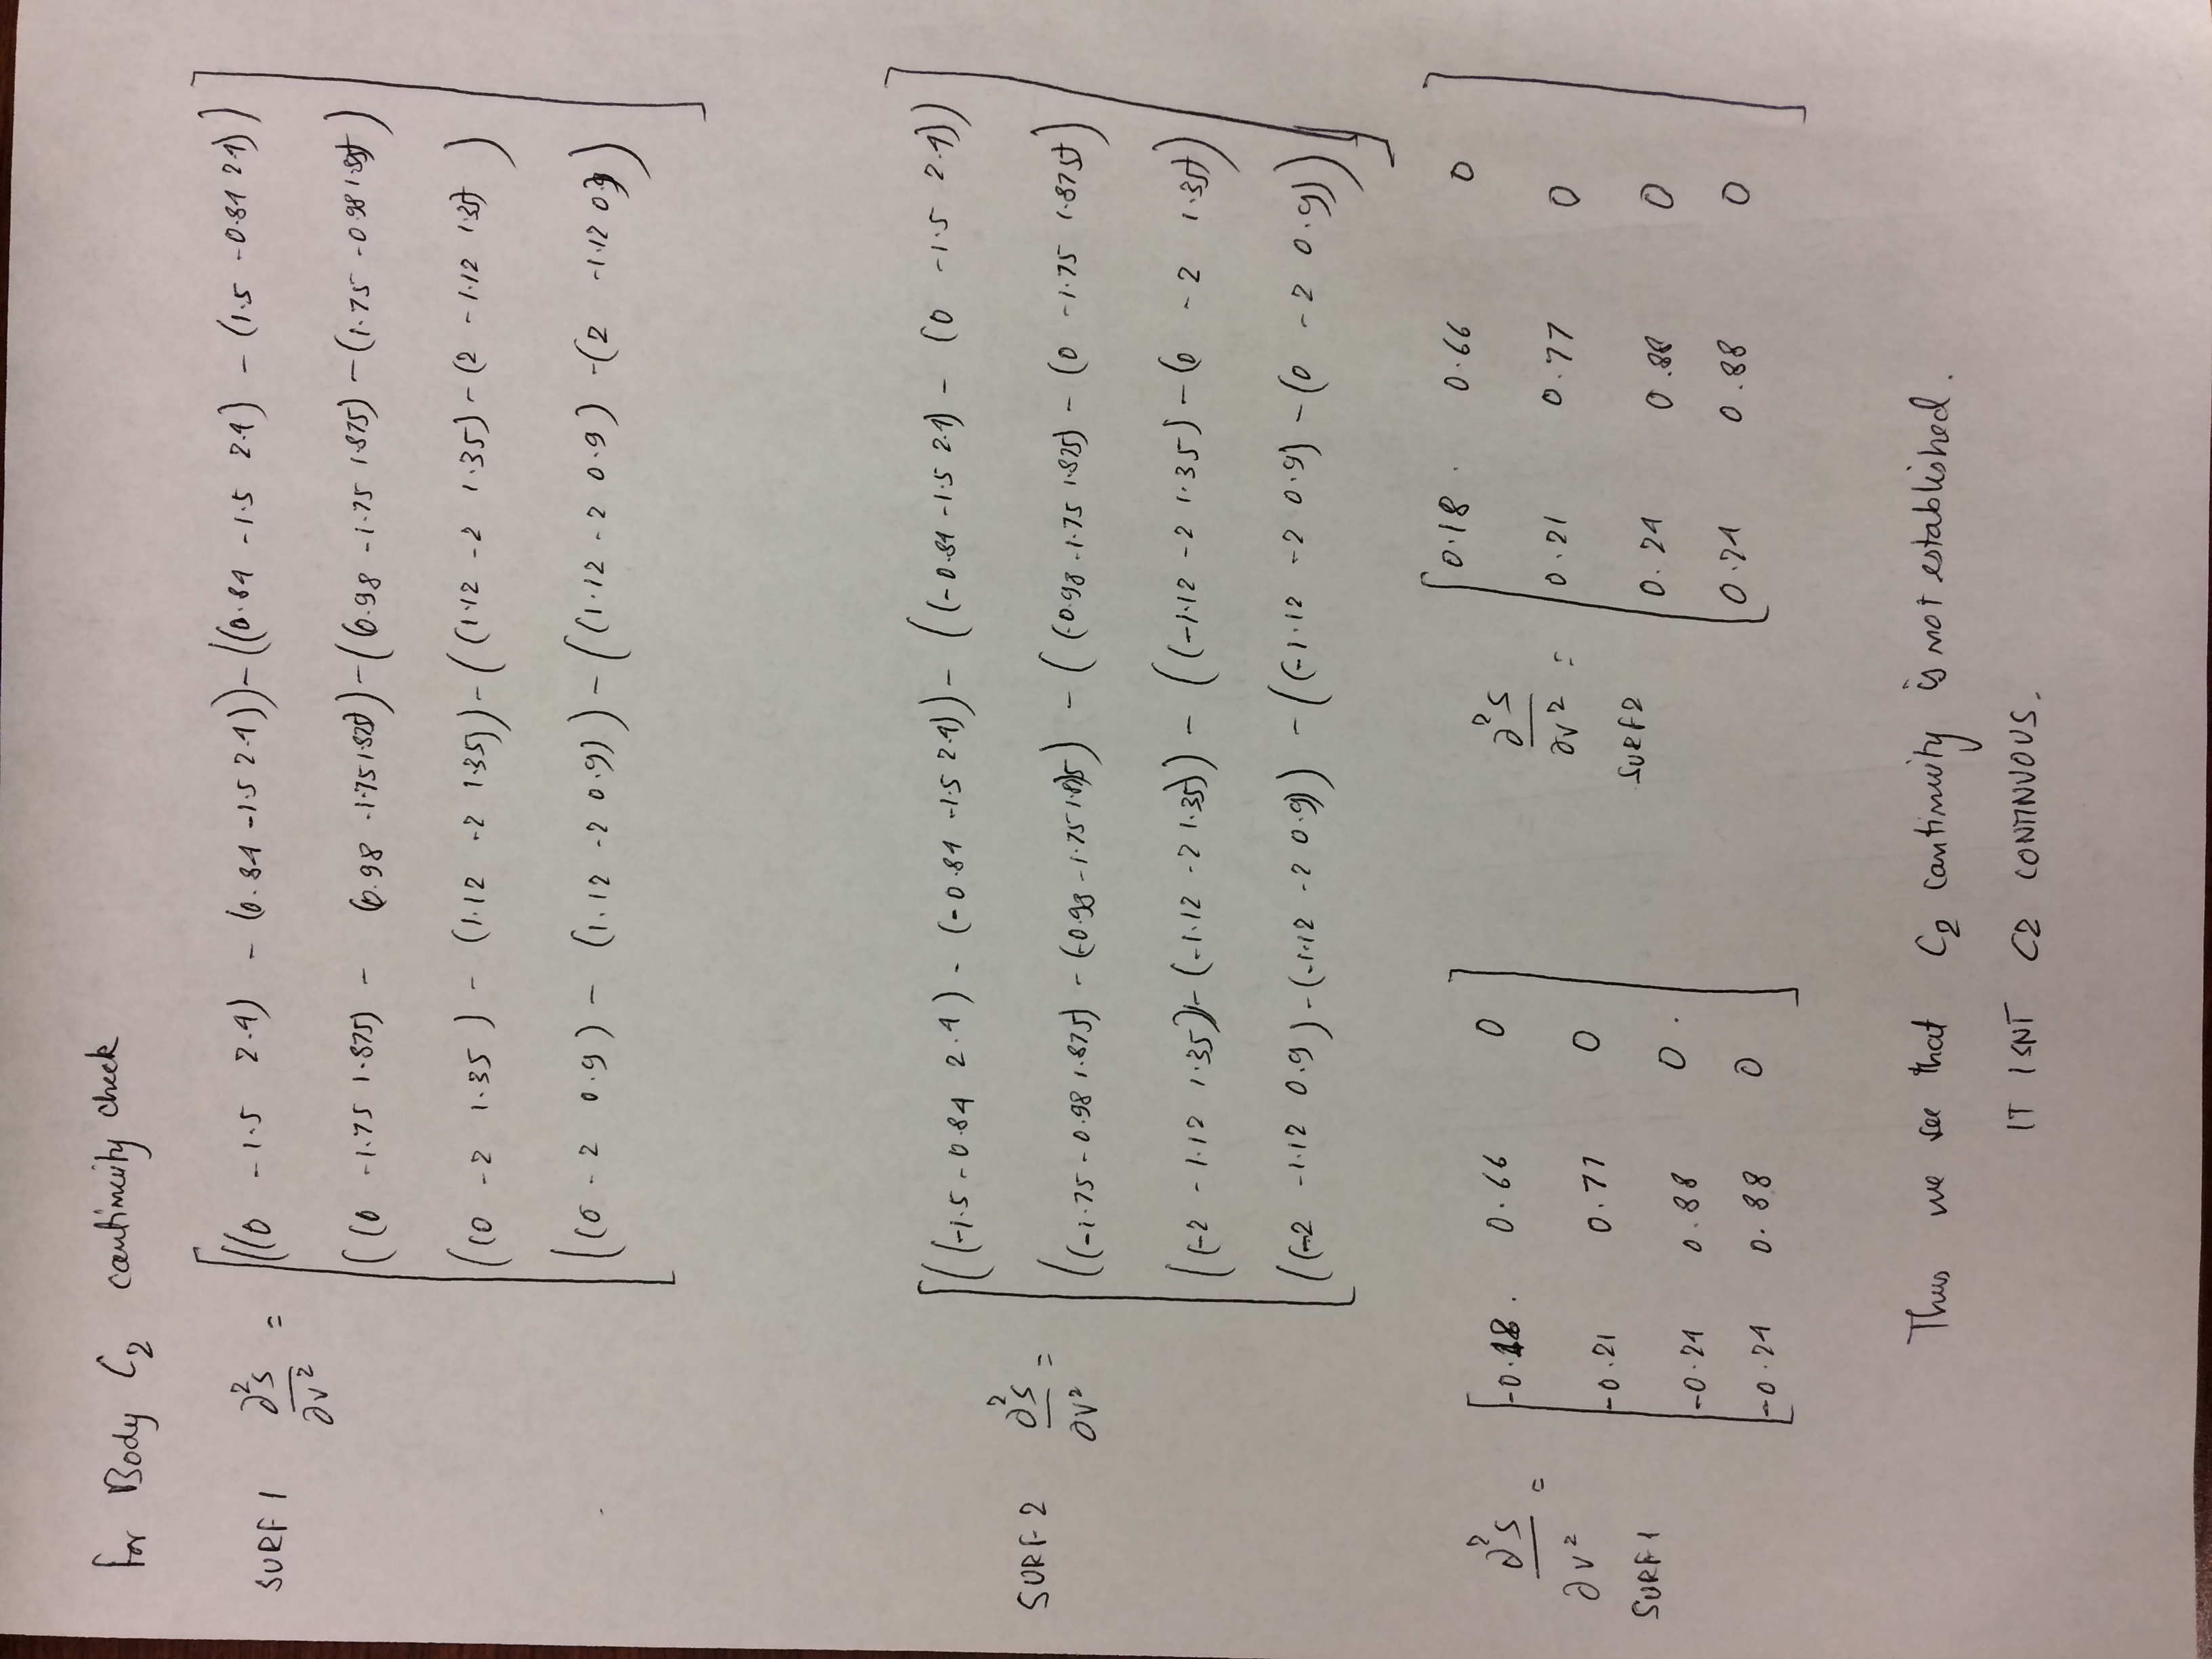 for Body C2 continuity check
SURF 1 ∂²S/∂v² =
((0 -1.5 2.4) - (0.84 -1.5 2.4)) - ((0.84 -1.5 2.4) - (1.5 -0.84 2.4))
((0 -1.75 1.875) - (0.98 -1.75 1.875)) - ((0.98 -1.75 1.875) - (1.75 -0.98 1.875))
((0 -2 1.35) - (1.12 -2 1.35)) - ((1.12 -2 1.35) - (2 -1.12 1.35))
((0 -2 0.9) - (1.12 -2 0.9)) - ((1.12 -2 0.9) - (2 -1.12 0.9))
SURF 2 ∂²S/∂v² =
((-1.5 -0.84 2.4) - (-0.84 -1.5 2.4)) - ((-0.84 -1.5 2.4) - (0 -1.5 2.4))
((-1.75 -0.98 1.875) - (-0.98 -1.75 1.875)) - ((-0.98 -1.75 1.875) - (0 -1.75 1.875))
((-2 -1.12 1.35) - (-1.12 -2 1.35)) - ((-1.12 -2 1.35) - (0 -2 1.35))
((-2 -1.12 0.9) - (-1.12 -2 0.9)) - ((-1.12 -2 0.9) - (0 -2 0.9))
∂²S/∂v² =
SURF 1
-0.18 0.66 0
-0.21 0.77 0
-0.24 0.88 0
-0.24 0.88 0
∂²S/∂v² =
SURF 2
0.18 0.66 0
0.21 0.77 0
0.24 0.88 0
0.24 0.88 0
Thus we see that C2 continuity is not established.
IT ISNT C2 CONTINUOUS.